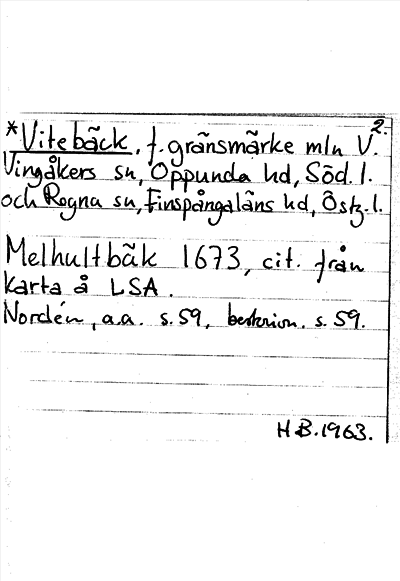 2.
*Vitebäck, f. gränsmärke mln V.
Vingåkers sn, Oppunda hd, Söd. l.
och Regna sn, Finspångaläns hd, Östg. l.
Melhultbäk 1673, cit. från
karta å LSA.
Nordén, a.a. s. 59, s. 59.
H.B. 1963.